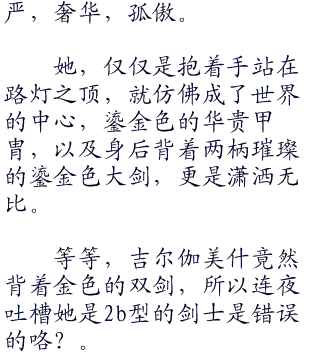 严，奢华，孤傲。
她，仅仅是抱着手站在
路灯之顶，就仿佛成了世界
的中心，鎏金色的华贵甲
胄，以及身后背着两柄璀璨
的鎏金色大剑，更是潇洒无
比。
等等，吉尔伽美什竟然
背着金色的双剑，所以连夜
吐槽她是2b型的剑士是错误
的咯？。